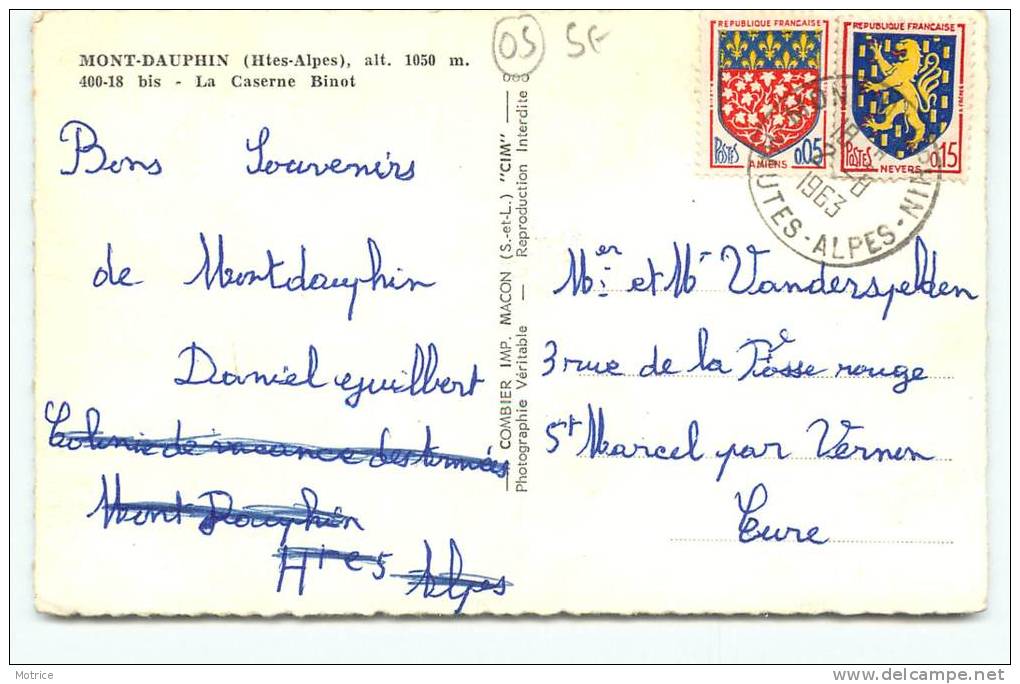 MONT-DAUPHIN (Htes-Alpes), alt. 1050 m.
400-18 bis - La Caserne Binot
05 SF
Bons Souvenirs
de Montdauphin
Daniel Guilbert
Colonie de vacance des armées
Mont Dauphin
Htes Alpes
COMBIER IMP. MACON (S.-et-L.) "CIM"
Photographie Véritable — Reproduction Interdite
REPUBLIQUE FRANÇAISE
POSTES
AMIENS
0,05
REPUBLIQUE FRANÇAISE
POSTES
NEVERS
0,15
1963
UTES-ALPES
Mer et Mr Vanderspelden
3 rue de la Fosse rouge
St Marcel par Vernon
Eure
Motrice
www.delcampe.net